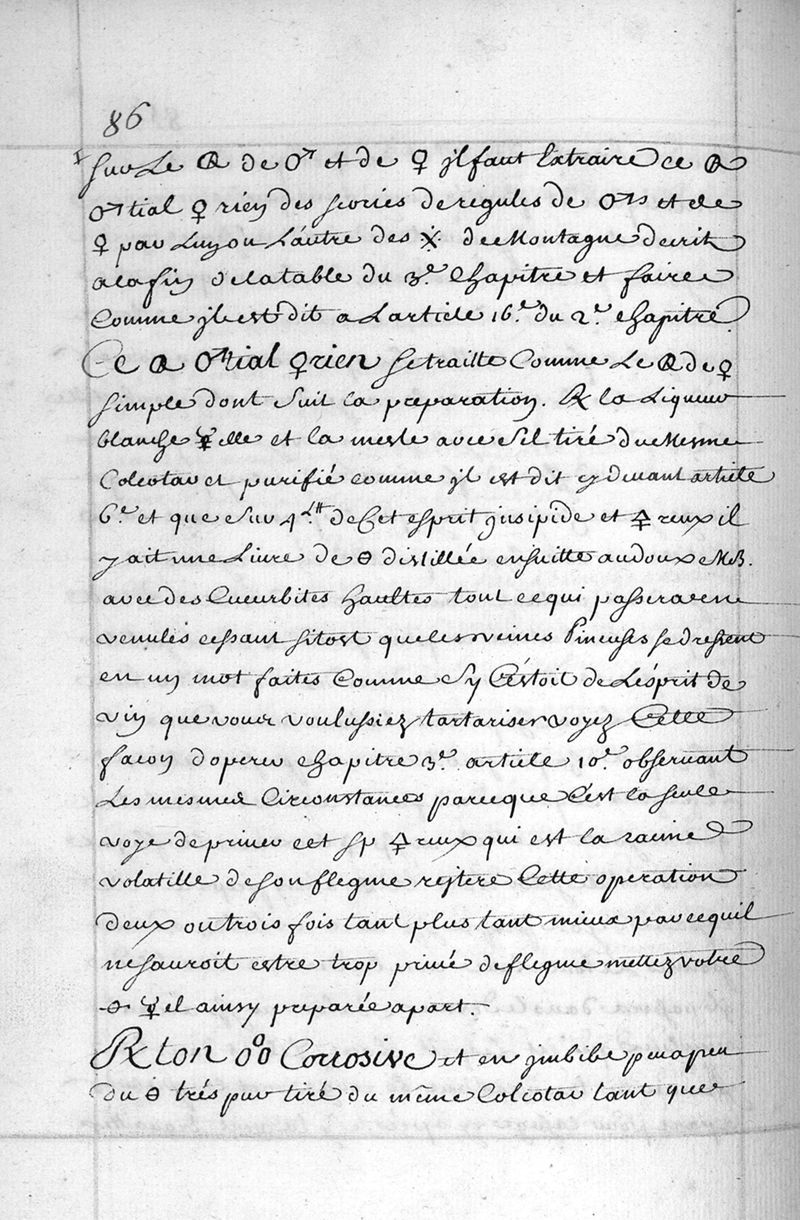 86
sur Le 🜖 de ♂ et de ♀ jl faut Extraire ce 🜖
♂tial ♀rien des scories de regules de ♂s et de
♀ par Luy ou L'autre des de Montagne decrit
a la fin de la table du 3.e Chapitre et faire
Comme jl est dit a L'article 16.e du 2.e chapitre
Ce 🜖 ♂tial ♀rien se traitte Comme Le 🜖 de ♀
simple dont suit la preparation. ℞ la Liqueur
blanche ☿elle et la mesle avec sel tiré du Mesme
Colcotar et purifié comme jl est dit cy devant article
6.e et que sur 4 de Cet esprit jnsipide et 🜍reux il
y ait une Livre de 🜔 distillée ensuitte au doux MB.
avec des Cucurbites haultes tout ce qui passera en
venules cessant sitost que les veines Pineuses se dressent
en un mot faites Comme sy C'éstoit de L'ésprit de
vin que vous voulussiez tartariser voyez Cette
facon d'operer chapitre 3.e article 10.e observant
Les mesmes Circonstances parceque C'est la seule
voye de priver cet sp 🜍reux qui est la racine
volatille de son flegme rejtere Cette operation
deux ou trois fois tant plus tant mieux parcequil
ne sauroit estre trop privé de flegme mettez votre
🜔 ☿el ainsy preparée apart.
℞ ton o°o Corrosive et en jmbibe peu a peu
du 🜔 trés pur tiré du même Colcotar tant que